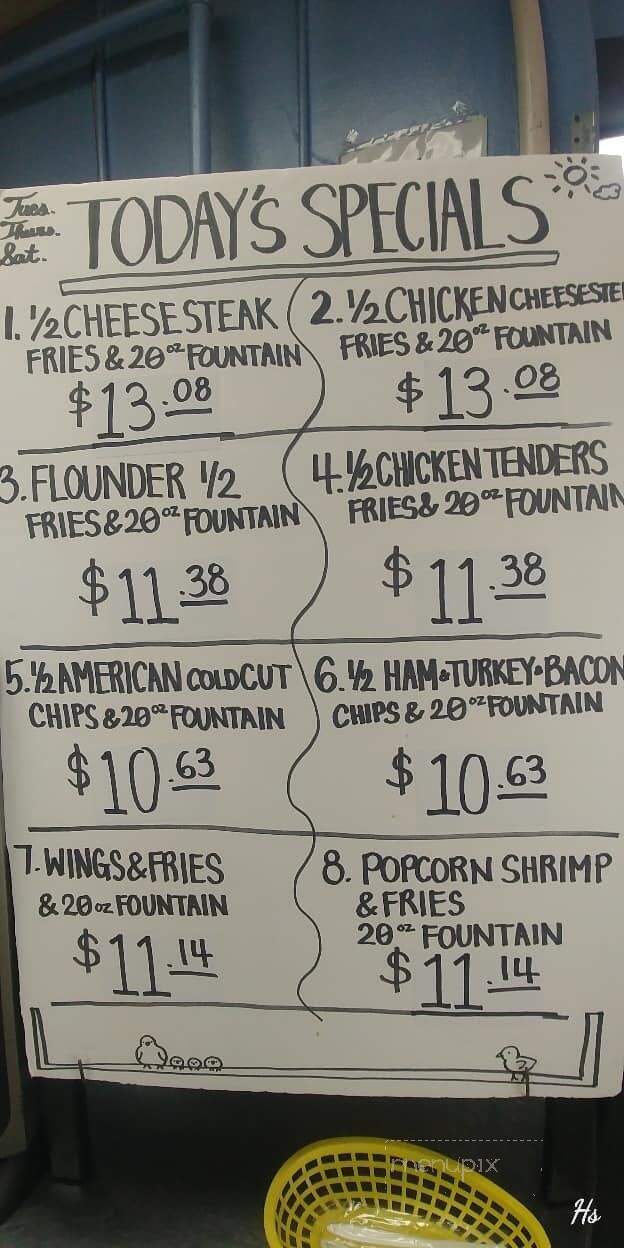 Tues.
Thurs.
Sat.
TODAY'S SPECIALS
1. ½ CHEESESTEAK
FRIES & 20 oz FOUNTAIN
$13.08
2. ½ CHICKEN CHEESESTE
FRIES & 20 oz FOUNTAIN
$13.08
3. FLOUNDER ½
FRIES & 20 oz FOUNTAIN
$11.38
4. ½ CHICKEN TENDERS
FRIES & 20 oz FOUNTAIN
$11.38
5. ½ AMERICAN COLDCUT
CHIPS & 20 oz FOUNTAIN
$10.63
6. ½ HAM•TURKEY•BACON
CHIPS & 20 oz FOUNTAIN
$10.63
7. WINGS & FRIES
& 20 oz FOUNTAIN
$11.14
8. POPCORN SHRIMP
& FRIES
20 oz FOUNTAIN
$11.14
menupix
Hs